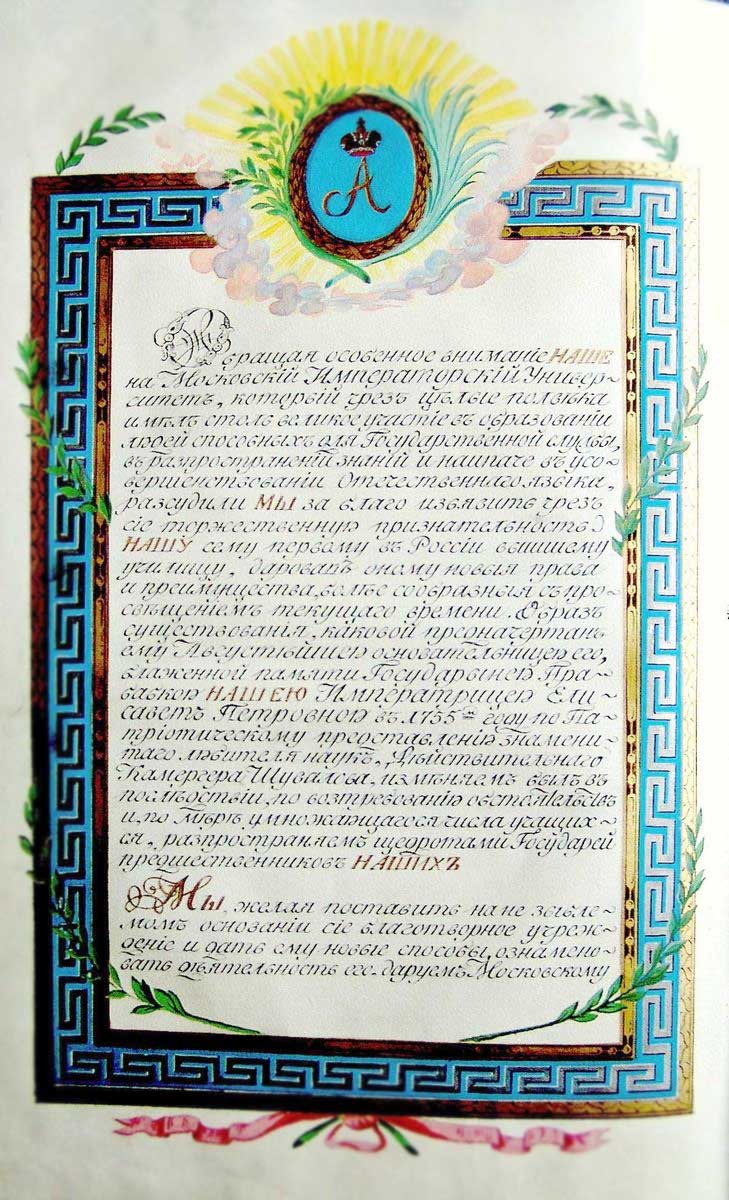 А
Обращая особенное вниманіе НАШЕ
на Московскій Императорскій Универ~
ситетъ, который чрезъ цѣлые полвѣка
имѣлъ столь великое участіе въ образованіи
людей способныхъ для Государственной службы,
въ разпространеніи знаній и наипаче въ усо~
вершенствованіи Отечественнаго языка,
разсудили МЫ за благо изъявить чрезъ
сіе торжественную признательность
НАШУ сему первому въ Россіи вышшему
училищу, даровавъ оному новыя права
и преимущества, болѣе сообразныя съ про~
свѣщеніемъ текущаго времени. Образъ
существованія, каковой предначертанъ
ему Августѣйшею основательницею его,
блаженной памяти Государынею Пра~
бабкою НАШЕЮ Императрицею Ели~
саветъ Петровною въ 1755мъ году по Па~
тріотическому представленію знамени~
таго любителя наукъ, Дѣйствительнаго
Камергера Шувалова, измѣняемъ былъ въ
послѣдствіи, по возтребованію обстоятельствъ
и, по мѣрѣ умножающагося числа учащих~
ся, разпространяемъ щедротами Государей
предшественниковъ НАШИХЪ
Мы, желая поставить на не зыбле~
момъ основаніи сіе благотворное учреж~
деніе и дать ему новые способы, ознамено~
вать дѣятельность его, даруемъ Московскому